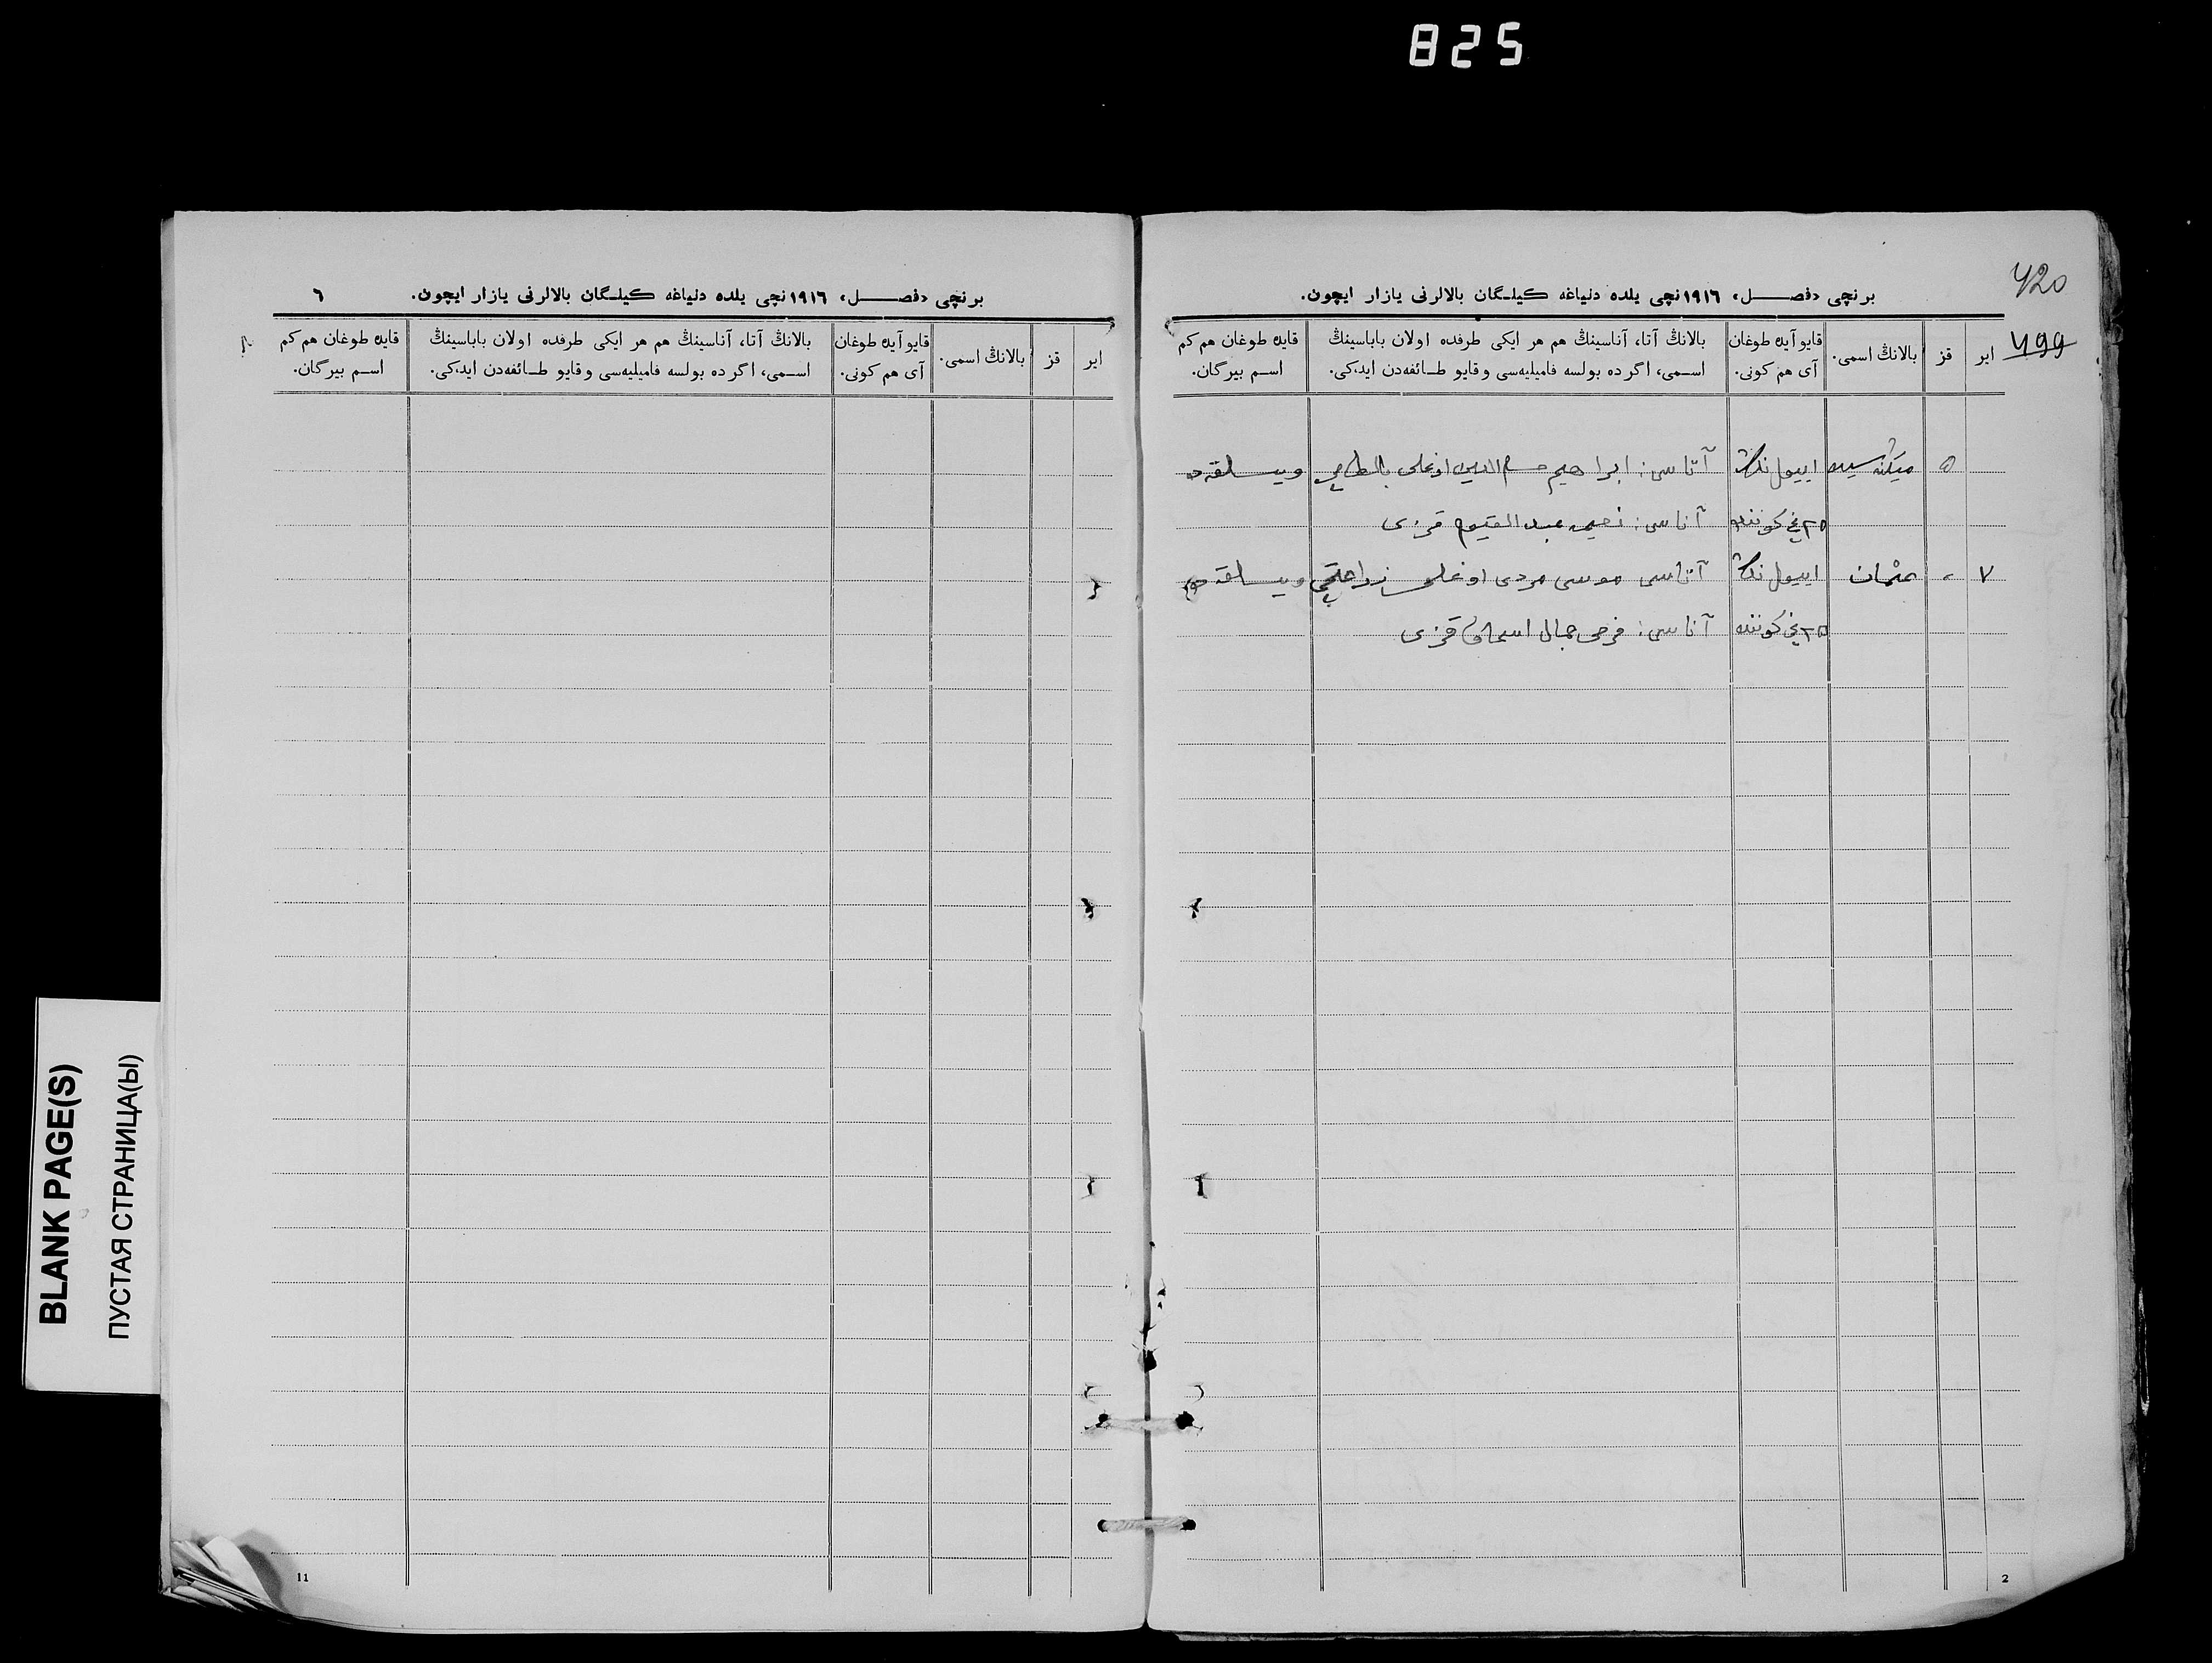 825
420
499
برنچی «فصل» ١٩١٦نچی یلده دنیاغه کیلـگان بالالرنی یازار ایچون.
ایر
قز
بالانڭ اسمی.
قایو آیده طوغان
آی هم کونی.
بالانڭ آتا، آناسینڭ هم هر ایکی طرفده اولان باباسینڭ
اسمی، اگر ده بولسه فامیلیه‌سی و قایو طائفه‌دن ایدکی.
قایده طوغان هم کم
اسم بیرگان.
٥
اییول نڭ
آتاسی: ابراهیم حسام الدین اوغلی
٢٥ نچی کوننده
آناسی: نعیمه عبد القیوم قزی
٧
عثمان
اییول نڭ
آتاسی موسی مردی اوغلی
٢٥ نچی کوننده
آناسی: فرحی جمال اسحاق قزی
2
برنچی «فصل» ١٩١٦نچی یلده دنیاغه کیلـگان بالالرنی یازار ایچون.
٦
ایر
قز
بالانڭ اسمی.
قایو آیده طوغان
آی هم کونی.
بالانڭ آتا، آناسینڭ هم هر ایکی طرفده اولان باباسینڭ
اسمی، اگر ده بولسه فامیلیه‌سی و قایو طائفه‌دن ایدکی.
قایده طوغان هم کم
اسم بیرگان.
11
BLANK PAGE(S)
ПУСТАЯ СТРАНИЦА(Ы)